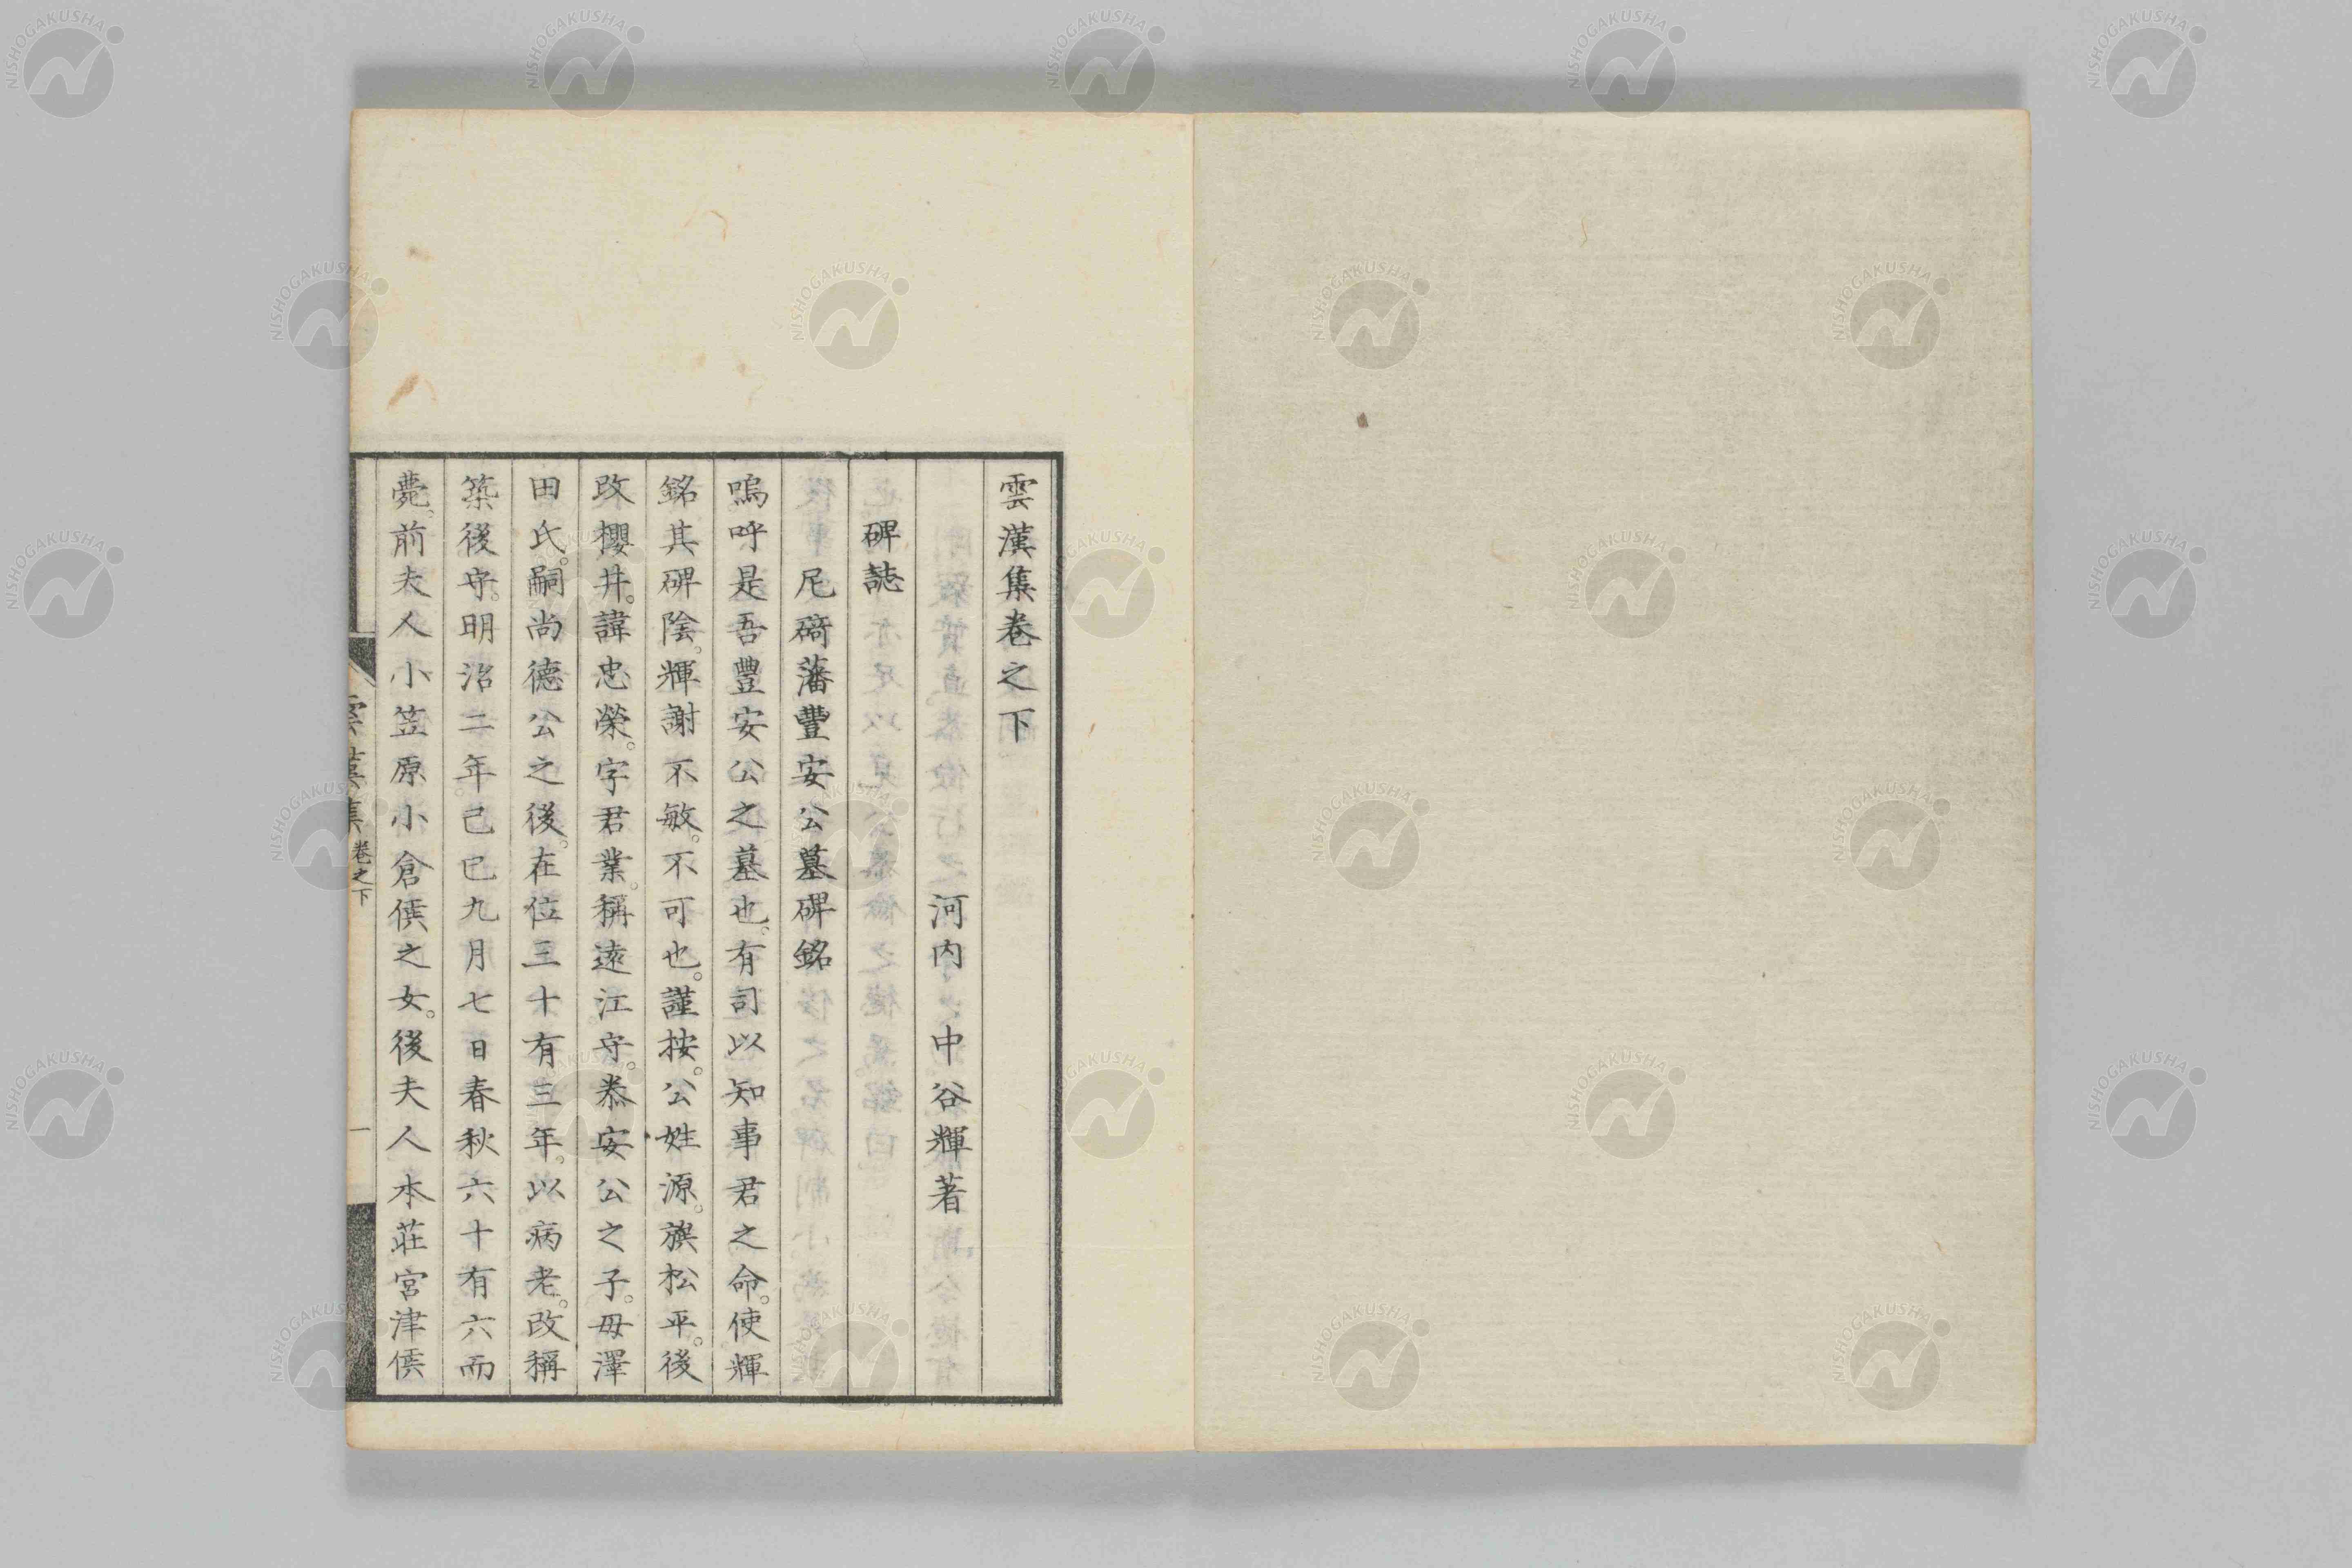 雲漢集卷之下
河内 中谷輝著
碑誌
尼﨑藩豐安公墓碑銘
嗚呼是吾豐安公之墓也。有司以知事君之命。使輝
銘其碑陰。輝謝不敏。不可也。謹按。公姓源。族松平。後
改櫻井。諱忠榮。字君業。稱遠江守。恭安公之子。母澤
田氏。嗣尚德公之後。在位三十有三年。以病老。改稱
築後守。明治二年。己巳九月七日春秋六十有六而
薨。前夫人小笠原小倉侯之女。後夫人本莊宮津侯
雲漢集 卷之下 一
NISHOGAKUSHA